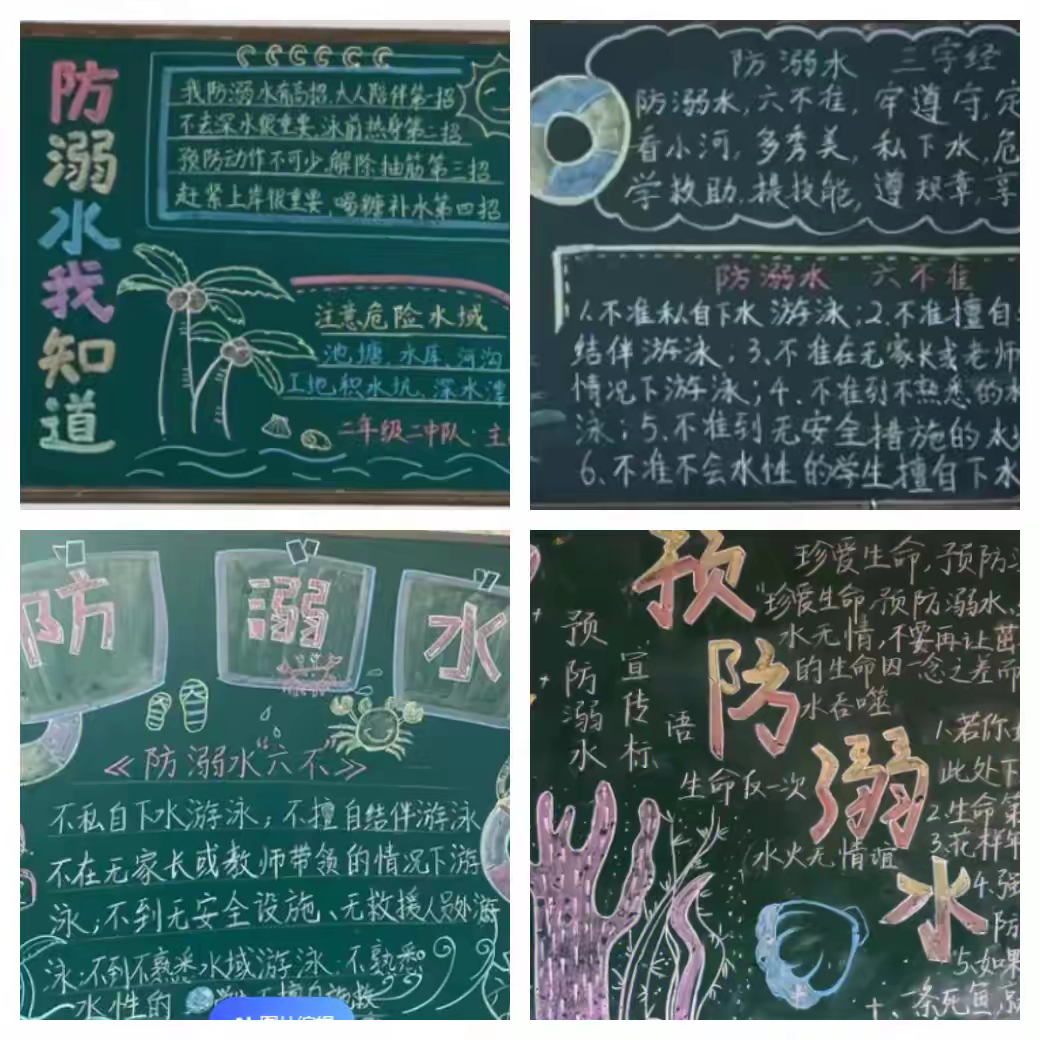 防溺水我知道
我防溺水有高招,大人陪伴第一招
不去深水很重要,泳前热身第二招
预防动作不可少,解除抽筋第三招
赶紧上岸很重要,喝糖补水第四招
注意危险水域
池塘、水库、河沟
工地、积水坑、深水潭
二年级二中队·主
防溺水 三字经
防溺水,六不准,牢遵守,定
看小河,多秀美,私下水,危
学救助,提技能,遵规章,享
防溺水 六不准
1.不准私自下水游泳;2.不准擅自
结伴游泳;3.不准在无家长或老师
情况下游泳;4.不准到不熟悉的水
泳;5.不准到无安全措施的水
6.不准不会水性的学生擅自下水
防溺水
《防溺水“六不”》
不私自下水游泳;不擅自结伴游泳
不在无家长或教师带领的情况下游
泳;不到无安全设施、无救援人员处游
泳;不到不熟悉水域游泳;不熟悉
水性的
预防溺水
预防溺水
宣传标语
珍爱生命,预防
“珍爱生命,预防溺水、
水无情,不要再让茁
的生命因一念之差而
水吞噬
生命仅一次
水火无情谊
1.若你
此处下
2.生命第
3.花样年
4.强
防
5.如果
一条死鱼,